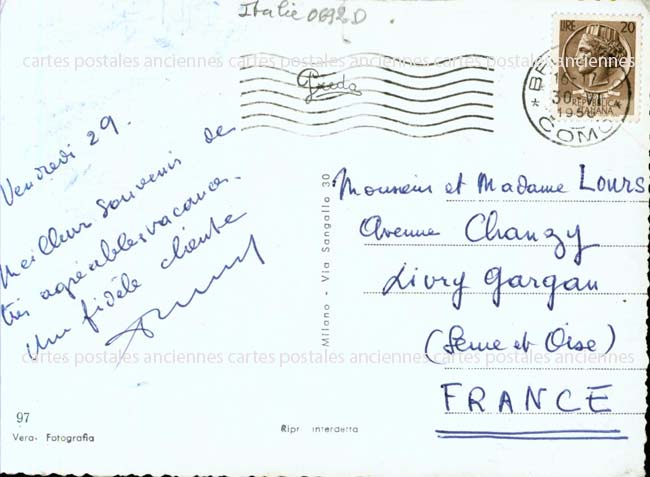 Italie 0692D
LIRE 20
16-
30.VI
195
COMO
REPUBBLICA
ITALIANA
cartes postales anciennes cartes postales anciennes cartes postales anciennes
Vendredi 29.
Meilleur souvenir de
très agréables vacances.
Une fidèle cliente
Milano - Via Sangallo 30
Monsieur et Madame Lours
Avenue Chanzy
Livry Gargan
(Seine et Oise)
FRANCE
cartes postales anciennes cartes postales anciennes cartes postales anciennes
97
Vera- Fotografia
Ripr interdetta